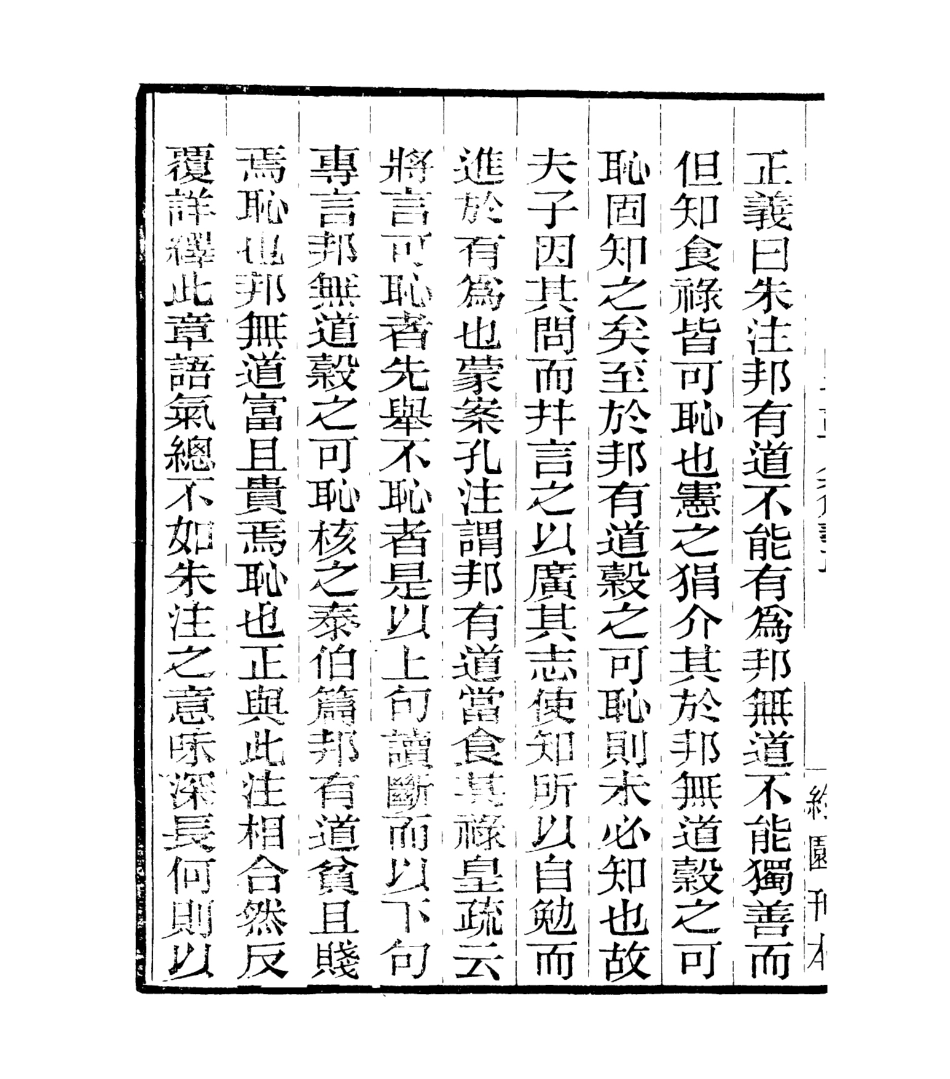 正義曰朱注邦有道不能有爲邦無道不能獨善而
但知食祿皆可恥也憲之狷介其於邦無道穀之可
恥固知之矣至於邦有道穀之可恥則未必知也故
夫子因其問而幷言之以廣其志使知所以自勉而
進於有爲也蒙案孔注謂邦有道當食其祿皇疏云
將言可恥者先舉不恥者是以上句讀斷而以下句
專言邦無道穀之可恥核之泰伯篇邦有道貧且賤
焉恥也邦無道富且貴焉恥也正與此注相合然反
覆詳繹此章語氣總不如朱注之意味深長何則以
園刊本